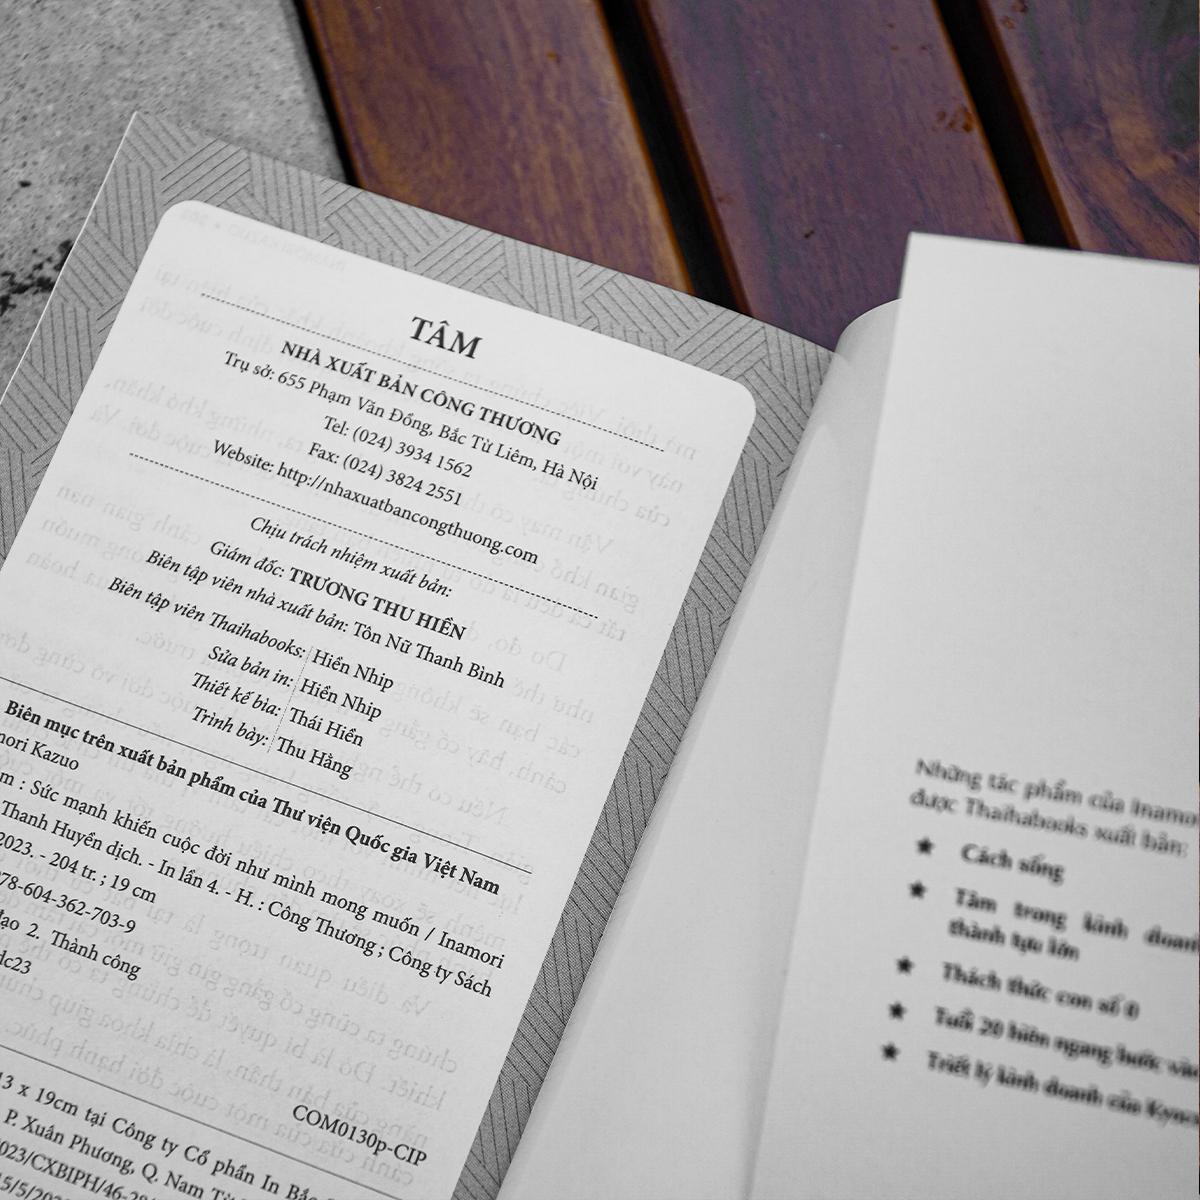 TÂM
NHÀ XUẤT BẢN CÔNG THƯƠNG
Trụ sở: 655 Phạm Văn Đồng, Bắc Từ Liêm, Hà Nội
Tel: (024) 3934 1562
Fax: (024) 3824 2551
Website: http://nhaxuatbancongthuong.com
Chịu trách nhiệm xuất bản:
Giám đốc: TRƯƠNG THU HIỀN
Biên tập viên nhà xuất bản: Tôn Nữ Thanh Bình
Biên tập viên Thaihabooks: Hiền Nhip
Sửa bản in: Hiền Nhip
Thiết kế bìa: Thái Hiền
Trình bày: Thu Hằng
Biên mục trên xuất bản phẩm của Thư viện Quốc gia Việt Nam
mori Kazuo
m : Sức mạnh khiến cuộc đời như mình mong muốn / Inamori
Thanh Huyền dịch. - In lần 4. - H. : Công Thương ; Công ty Sách
2023. - 204 tr. ; 19 cm
78-604-362-703-9
đạo 2. Thành công
dc23
COM0130p-CIP
13 x 19cm tại Công ty Cổ phần In Bắc
P. Xuân Phương, Q. Nam
2023/CXBIPH/46-
15/5/
Những tác phẩm của Inamor
được Thaihabooks xuất bản:
★ Cách sống
★ Tâm trong kinh doan
thành tựu lớn
★ Thách thức con số 0
★ Tuổi 20 hiên ngang bước vào
★ Triết lý kinh doanh của Kyoc